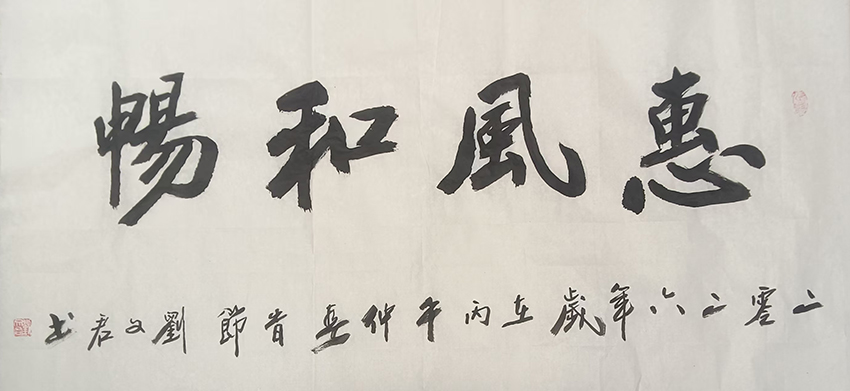 惠風和暢
二零二六年歲在丙午仲春首節劉文君书